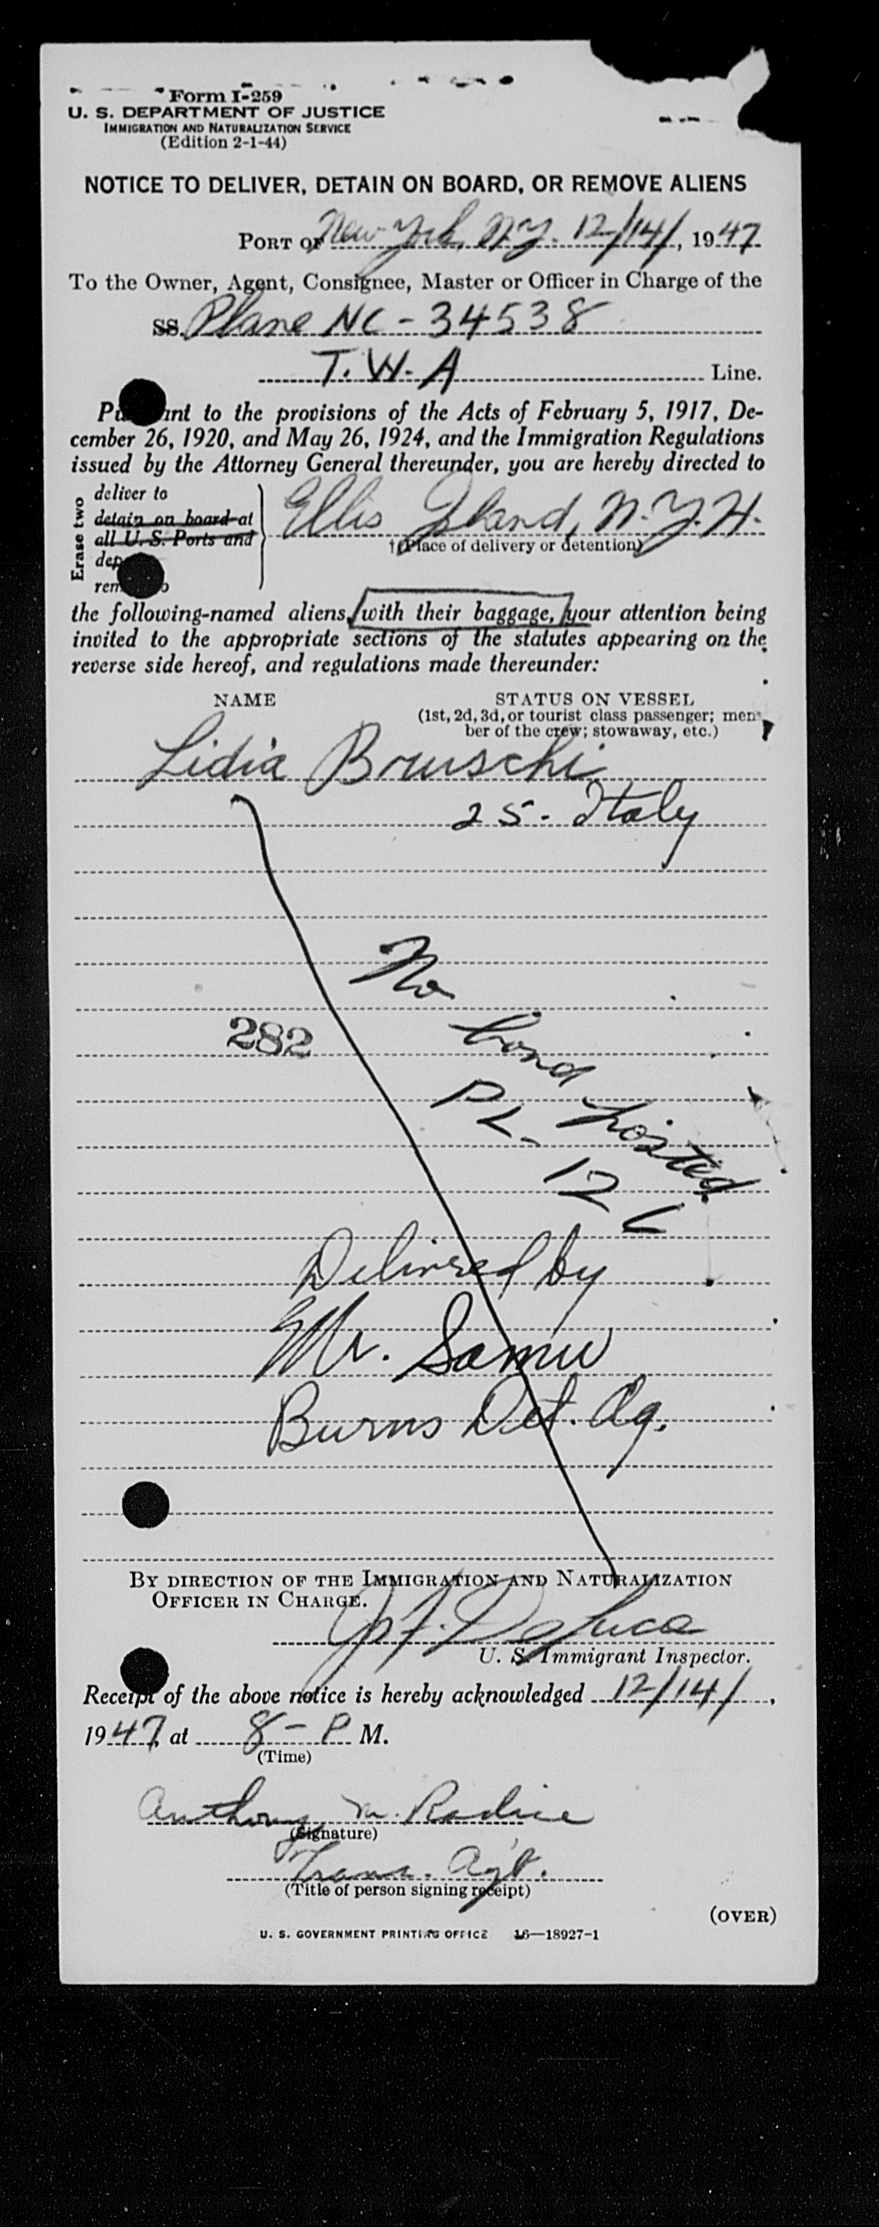 Form I-259
U. S. DEPARTMENT OF JUSTICE
IMMIGRATION AND NATURALIZATION SERVICE
(Edition 2-1-44)
NOTICE TO DELIVER, DETAIN ON BOARD, OR REMOVE ALIENS
PORT OF New York, N.Y. 12/14/, 1947
To the Owner, Agent, Consignee, Master or Officer in Charge of the
SS. Plane NC-34538
T.W.A Line.
Pursuant to the provisions of the Acts of February 5, 1917, De-
cember 26, 1920, and May 26, 1924, and the Immigration Regulations
issued by the Attorney General thereunder, you are hereby directed to
Erase two
deliver to
detain on board at
all U. S. Ports and
Ellis Island, N.Y.H.
(Place of delivery or detention)
the following-named aliens, with their baggage, your attention being
invited to the appropriate sections of the statutes appearing on the
reverse side hereof, and regulations made thereunder:
NAME STATUS ON VESSEL
(1st, 2d, 3d, or tourist class passenger; mem-
ber of the crew; stowaway, etc.)
Lidia Bruschi
25 - Italy
No
bond posted
282
PL-126
Delivered by
Mr. Samu
Burns Det. Ag.
BY DIRECTION OF THE IMMIGRATION AND NATURALIZATION
OFFICER IN CHARGE.
DeLuca
U. S. Immigrant Inspector.
Receipt of the above notice is hereby acknowledged 12/14/,
1947, at 8 - P M.
(Time)
Anthony M. Radice
(Signature)
Trans. Agt.
(Title of person signing receipt)
(OVER)
U. S. GOVERNMENT PRINTING OFFICE 16—18927-1